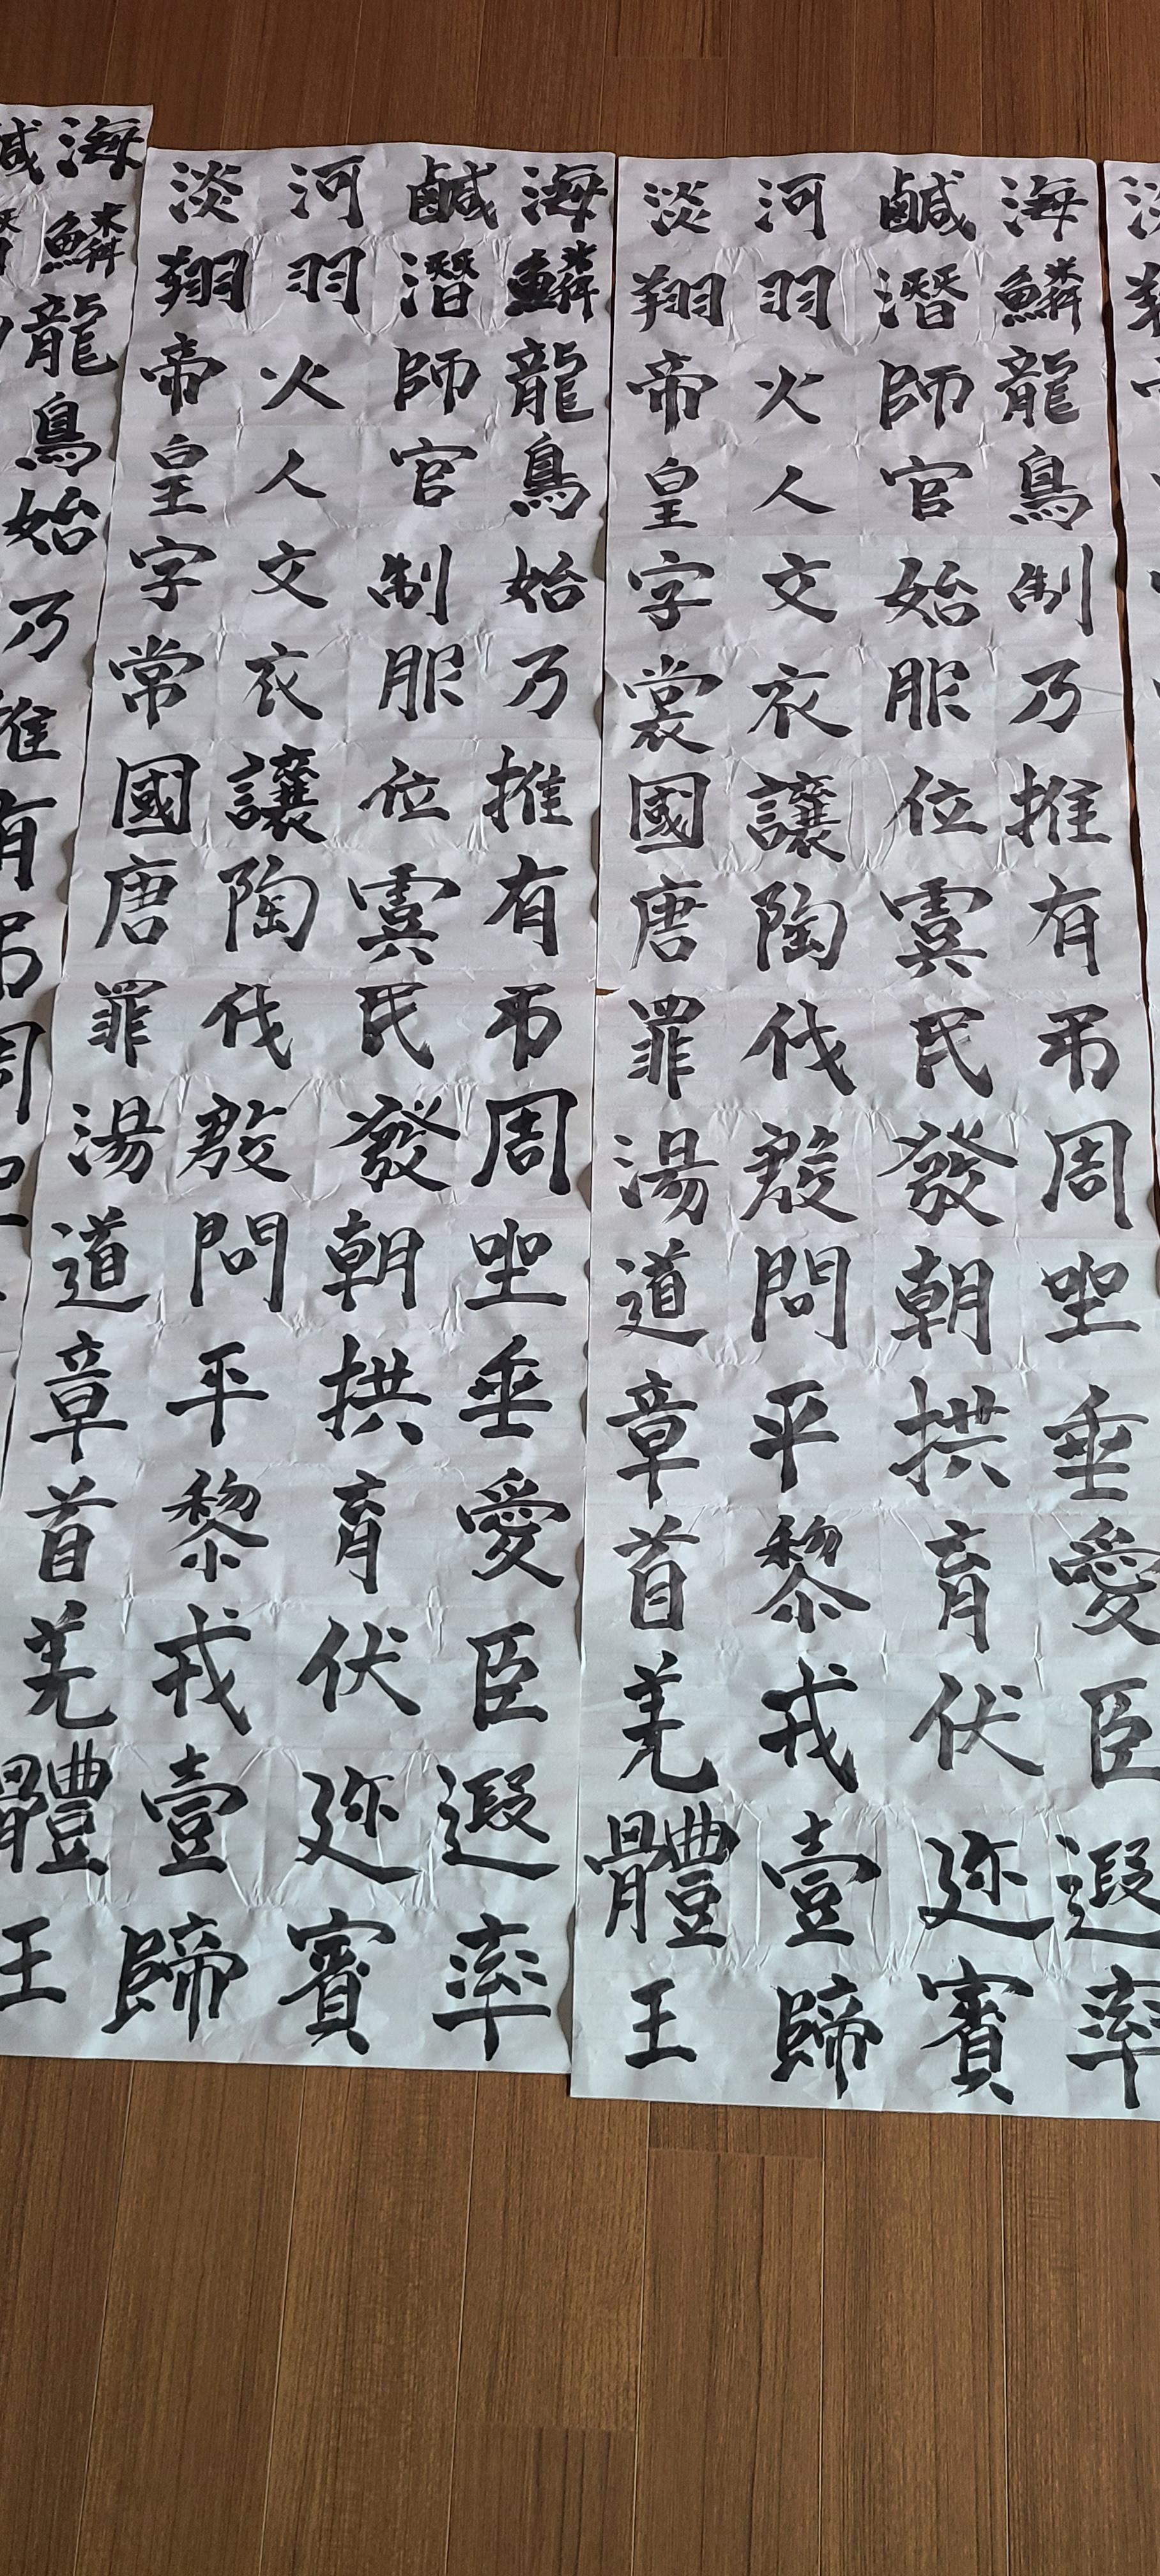 淡
翔
海鹹河淡
鱗潛羽翔
龍師火帝
鳥官人皇
制始文字
乃服衣裳
推位讓國
有虞陶唐
弔民伐罪
周發殷湯
坐朝問道
垂拱平章
愛育黎首
臣伏戎羌
遐迩壹體
率賓歸王
海鹹河淡
鱗潛羽翔
龍師火帝
鳥官人皇
始制文字
乃服衣常
推位讓國
有虞陶唐
弔民伐罪
周發殷湯
坐朝問道
垂拱平章
愛育黎首
臣伏戎羌
遐迩壹體
率賓歸王
海鹹
鱗
龍
鳥
始
乃
推
有
弔
周